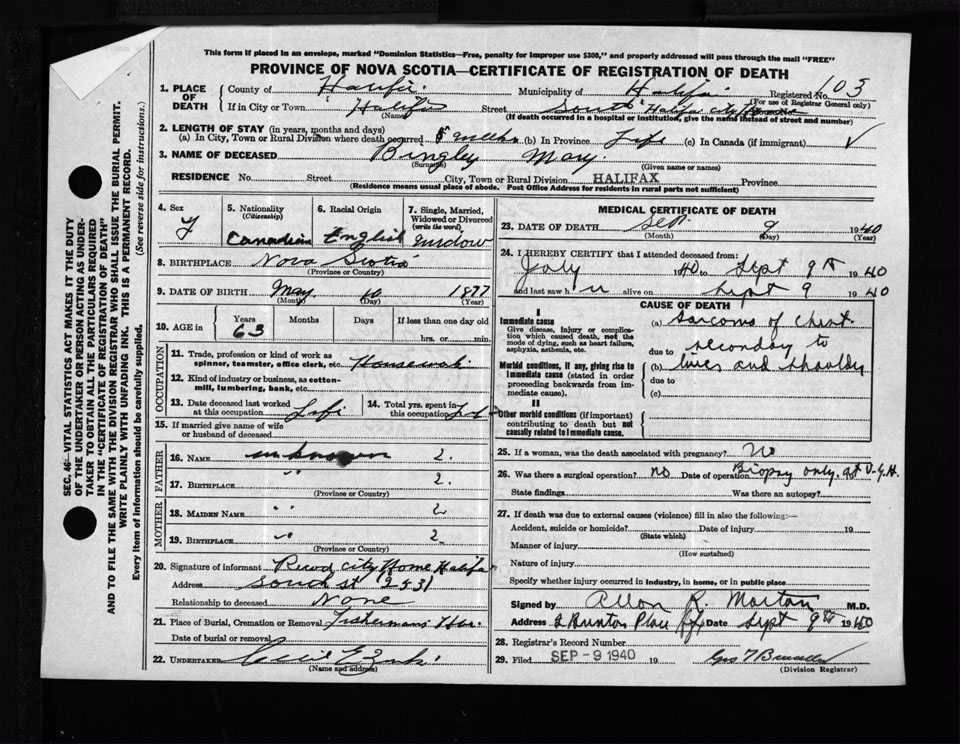 This form if placed in an envelope, marked "Dominion Statistics—Free, penalty for improper use $300," and properly addressed will pass through the mail "FREE"
PROVINCE OF NOVA SCOTIA—CERTIFICATE OF REGISTRATION OF DEATH
1. PLACE OF DEATH County of Halifax Municipality of Halifax Registered No. 103
(For use of Registrar General only)
If in City or Town Halifax Street South Halifax city Home
(Name) (If death occurred in a hospital or institution, give the name instead of street and number)
2. LENGTH OF STAY (in years, months and days)
(a) In City, Town or Rural Division where death occurred 5 weeks (b) In Province Life (c) In Canada (if immigrant) ✓
3. NAME OF DECEASED Bingley Mary.
(Surname) (Given name or names)
RESIDENCE No. Street City, Town or Rural Division HALIFAX Province
(Residence means usual place of abode. Post Office Address for residents in rural parts not sufficient)
4. Sex 5. Nationality (Citizenship) 6. Racial Origin 7. Single, Married, Widowed or Divorced (write the word)
F Canadian English widow
8. BIRTHPLACE Nova Scotia
(Province or Country)
9. DATE OF BIRTH May 10 1877
(Month) (Day) (Year)
10. AGE in Years Months Days If less than one day old
63 hrs. or min.
OCCUPATION
11. Trade, profession or kind of work as spinner, teamster, office clerk, etc. Housework
12. Kind of industry or business, as cotton-mill, lumbering, bank, etc.
13. Date deceased last worked at this occupation Life 14. Total yrs. spent in this occupation Life
15. If married give name of wife or husband of deceased
FATHER
16. NAME unknown 2.
17. BIRTHPLACE " 2.
(Province or Country)
MOTHER
18. MAIDEN NAME " 2
19. BIRTHPLACE " 2
(Province or Country)
20. Signature of informant Record city Home Halifax
Address South st
Relationship to deceased None
21. Place of Burial, Cremation or Removal Fishermans Hbr.
Date of burial or removal
22. UNDERTAKER
(Name and address)
MEDICAL CERTIFICATE OF DEATH
23. DATE OF DEATH Sept 9 1940
(Month) (Day) (Year)
24. I HEREBY CERTIFY that I attended deceased from:
July 1940 to Sept 9th 1940
and last saw her alive on Sept 9 1940
CAUSE OF DEATH
I
Immediate cause
Give disease, injury or complication which caused death, not the mode of dying, such as heart failure, asphyxia, asthenia, etc.
(a) Sarcoma of chest
due to secondary to
Morbid conditions, if any, giving rise to immediate cause (stated in order proceeding backwards from immediate cause).
(b) liver and shoulder
due to
(c)
II
Other morbid conditions (if important) contributing to death but not causally related to immediate cause.
25. If a woman, was the death associated with pregnancy? No
26. Was there a surgical operation? no Date of operation Biopsy only. at V.G.H.
State findings Was there an autopsy?
27. If death was due to external causes (violence) fill in also the following:—
Accident, suicide or homicide? Date of injury 19
(State which)
Manner of injury
(How sustained)
Nature of injury
Specify whether injury occurred in industry, in home, or in public place
Signed by Allan R. Morton M.D.
Address Place Hfx Date Sept 9th 1940
28. Registrar's Record Number
29. Filed SEP - 9 1940 19
(Division Registrar)
SEC. 46 VITAL STATISTICS ACT MAKES IT THE DUTY OF THE UNDERTAKER OR PERSON ACTING AS UNDERTAKER TO OBTAIN ALL THE PARTICULARS REQUIRED IN THE "CERTIFICATE OF REGISTRATION OF DEATH" AND TO FILE THE SAME WITH THE DIVISION REGISTRAR WHO SHALL ISSUE THE BURIAL PERMIT.
WRITE PLAINLY WITH UNFADING INK. THIS IS A PERMANENT RECORD.
Every item of information should be carefully supplied. (See reverse side for instructions.)